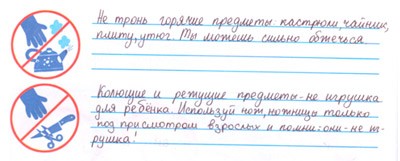 Не тронь горячие предметы: кастрюли, чайник,
плиту, утюг. Ты можешь сильно обжечься.
Колющие и режущие предметы - не игрушка
для ребёнка. Используй нож, ножницы только
под присмотром взрослых и помни: они - не иг-
рушка!